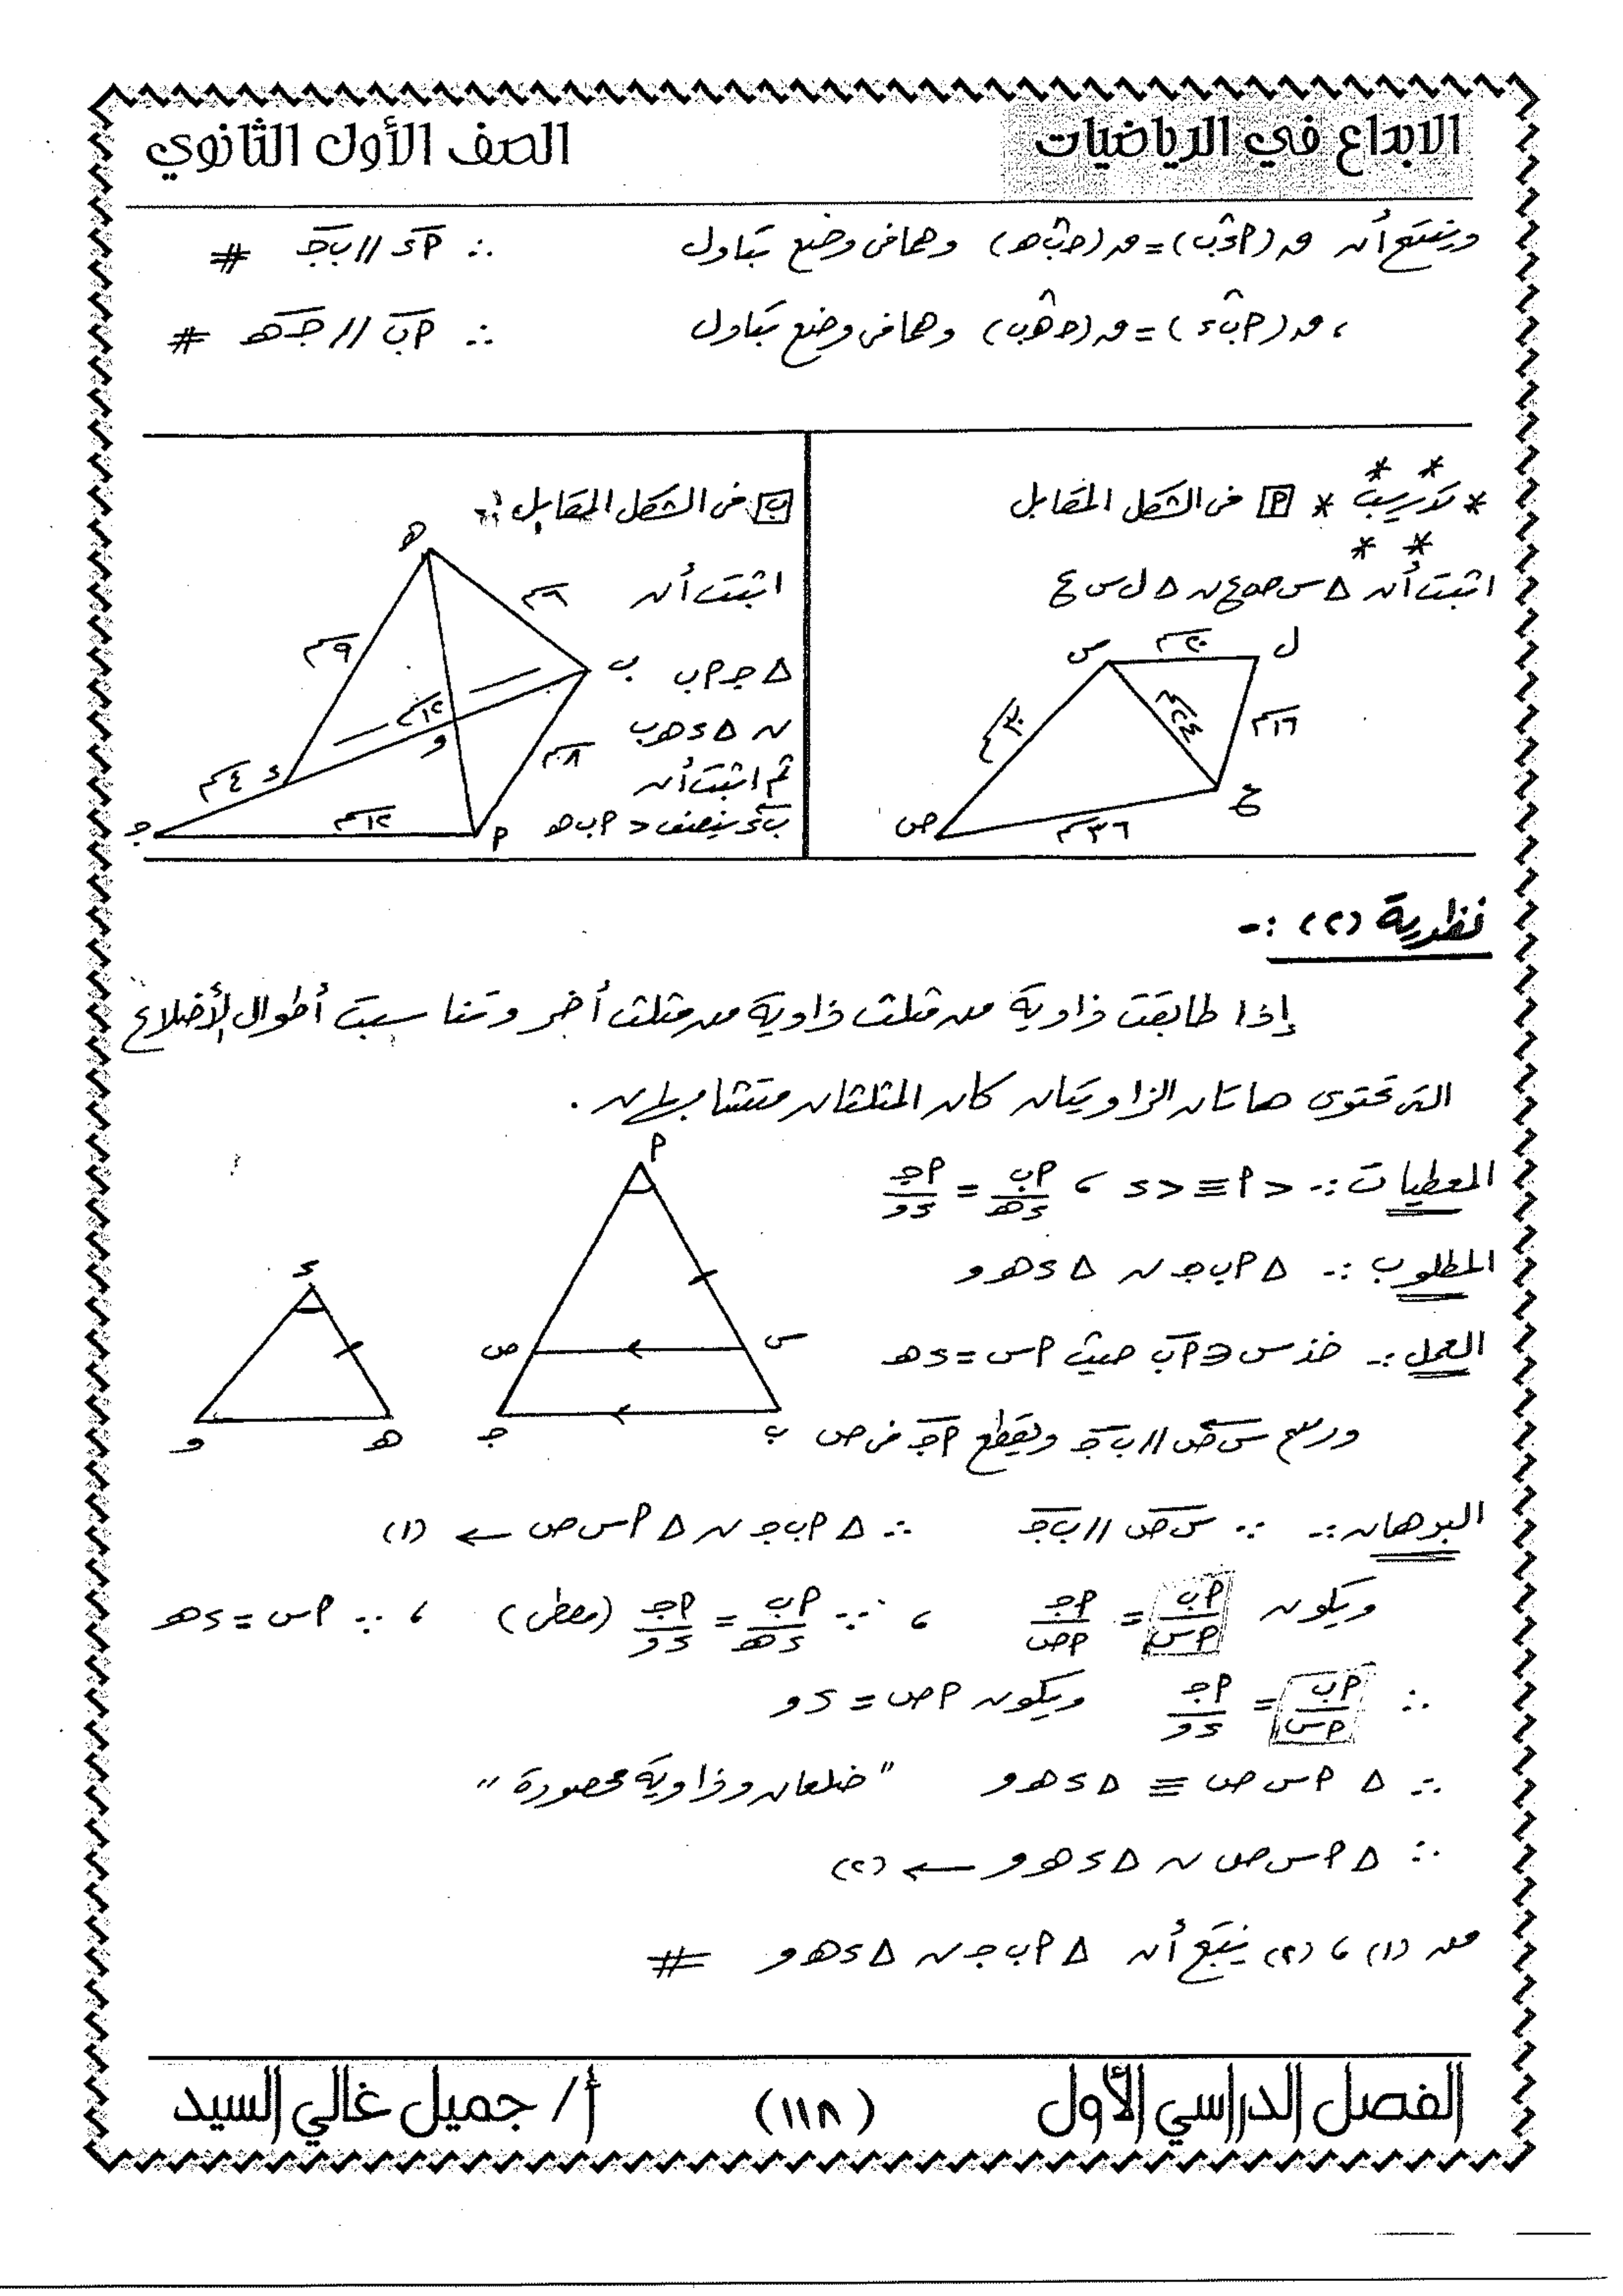 الابداع في الرياضيات
الصف الأول الثانوي
وينتج أن ق(أد^ب) = ق(حب^هـ) وهما فى وضع تبادل ∴ أد // ب جـ #
، ق(أب^د) = ق(حهـ^ب) وهما فى وضع تبادل ∴ أب // جـ هـ #
* تدريب * [أ] فى الشكل المقابل
اثبت أن Δ س ص ع ~ Δ ل س ع
ل
س
٢٠سم
١٦سم
٢٤سم
٣٠سم
ع
ص
٣٦سم
[ب] فى الشكل المقابل :-
اثبت أن
Δ جـ أ ب
~ Δ د هـ ب
ثم اثبت أن
ب د ينصف < أ ب هـ
هـ
٦سم
٩سم
ب
١٢سم
و
٨سم
د
٤سم
جـ
١٢سم
أ
نظرية (٢) :-
إذا طابقت زاوية من مثلث زاوية من مثلث أخر وتناسبت أطوال الأضلاع
التى تحتوى هاتان الزاويتان كان المثلثان متشابهان .
المعطيات :- < أ ≡ < د ، أب/د هـ = أجـ/د و
المطلوب :- Δ أ ب جـ ~ Δ د هـ و
العمل :- خذ س ∈ أب حيث أس = د هـ
ورسم س ص // ب جـ ويقطع أجـ فى ص
أ
س
ص
ب
جـ
د
هـ
و
البرهان :- ∵ س ص // ب جـ ∴ Δ أ ب جـ ~ Δ أ س ص ← (١)
ويكون أب/أس = أجـ/أص ، ∵ أب/د هـ = أجـ/د و (معطى) ، ∵ أس = د هـ
∴ أب/أس = أجـ/د و ويكون أص = د و
∴ Δ أ س ص ≡ Δ د هـ و "ضلعان وزاوية محصورة"
∴ Δ أ س ص ~ Δ د هـ و ← (٢)
من (١) ، (٢) ينتج أن Δ أ ب جـ ~ Δ د هـ و #
الفصل الدراسي الأول
(١١٨)
أ/ جميل غالي السيد